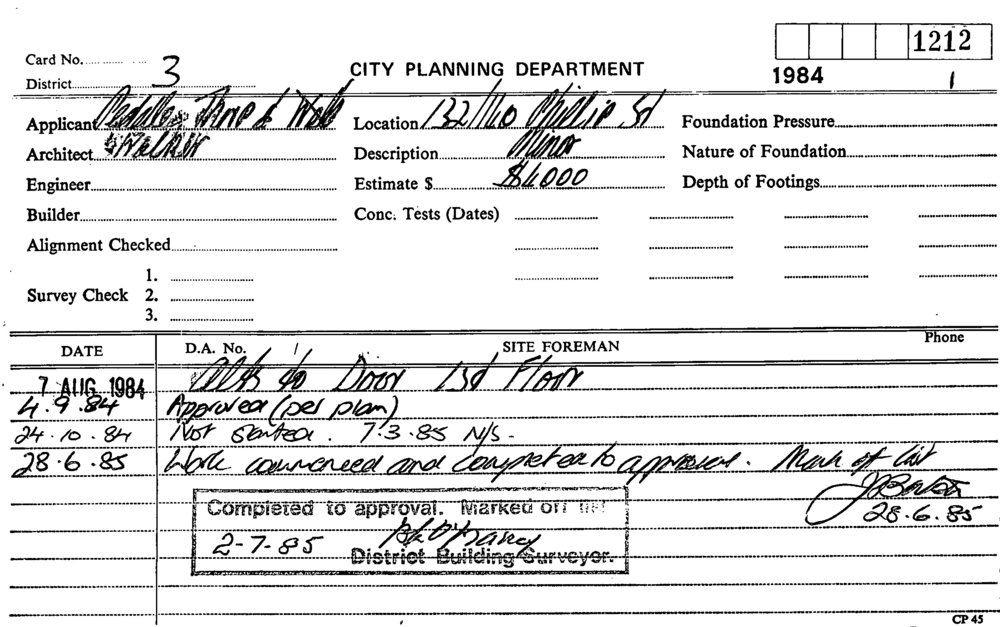 1212
Card No. 3
CITY PLANNING DEPARTMENT
1984 1
District
Applicant
Location 132/140 Phillip St
Foundation Pressure
Architect Walker
Description Minor
Nature of Foundation
Engineer
Estimate $ $4000
Depth of Footings
Builder
Conc. Tests (Dates)
Alignment Checked
1.
Survey Check 2.
3.
DATE D.A. No. SITE FOREMAN Phone
7 AUG 1984 Alts to Door 1st Floor
4.9.84 Approved (per plan)
24.10.84 Not started. 7.3.85 N/S.
28.6.85 Work commenced and completed to approval. Mark off list
28.6.85
Completed to approval. Marked off list
2-7-85
District Building Surveyor.
CP 45